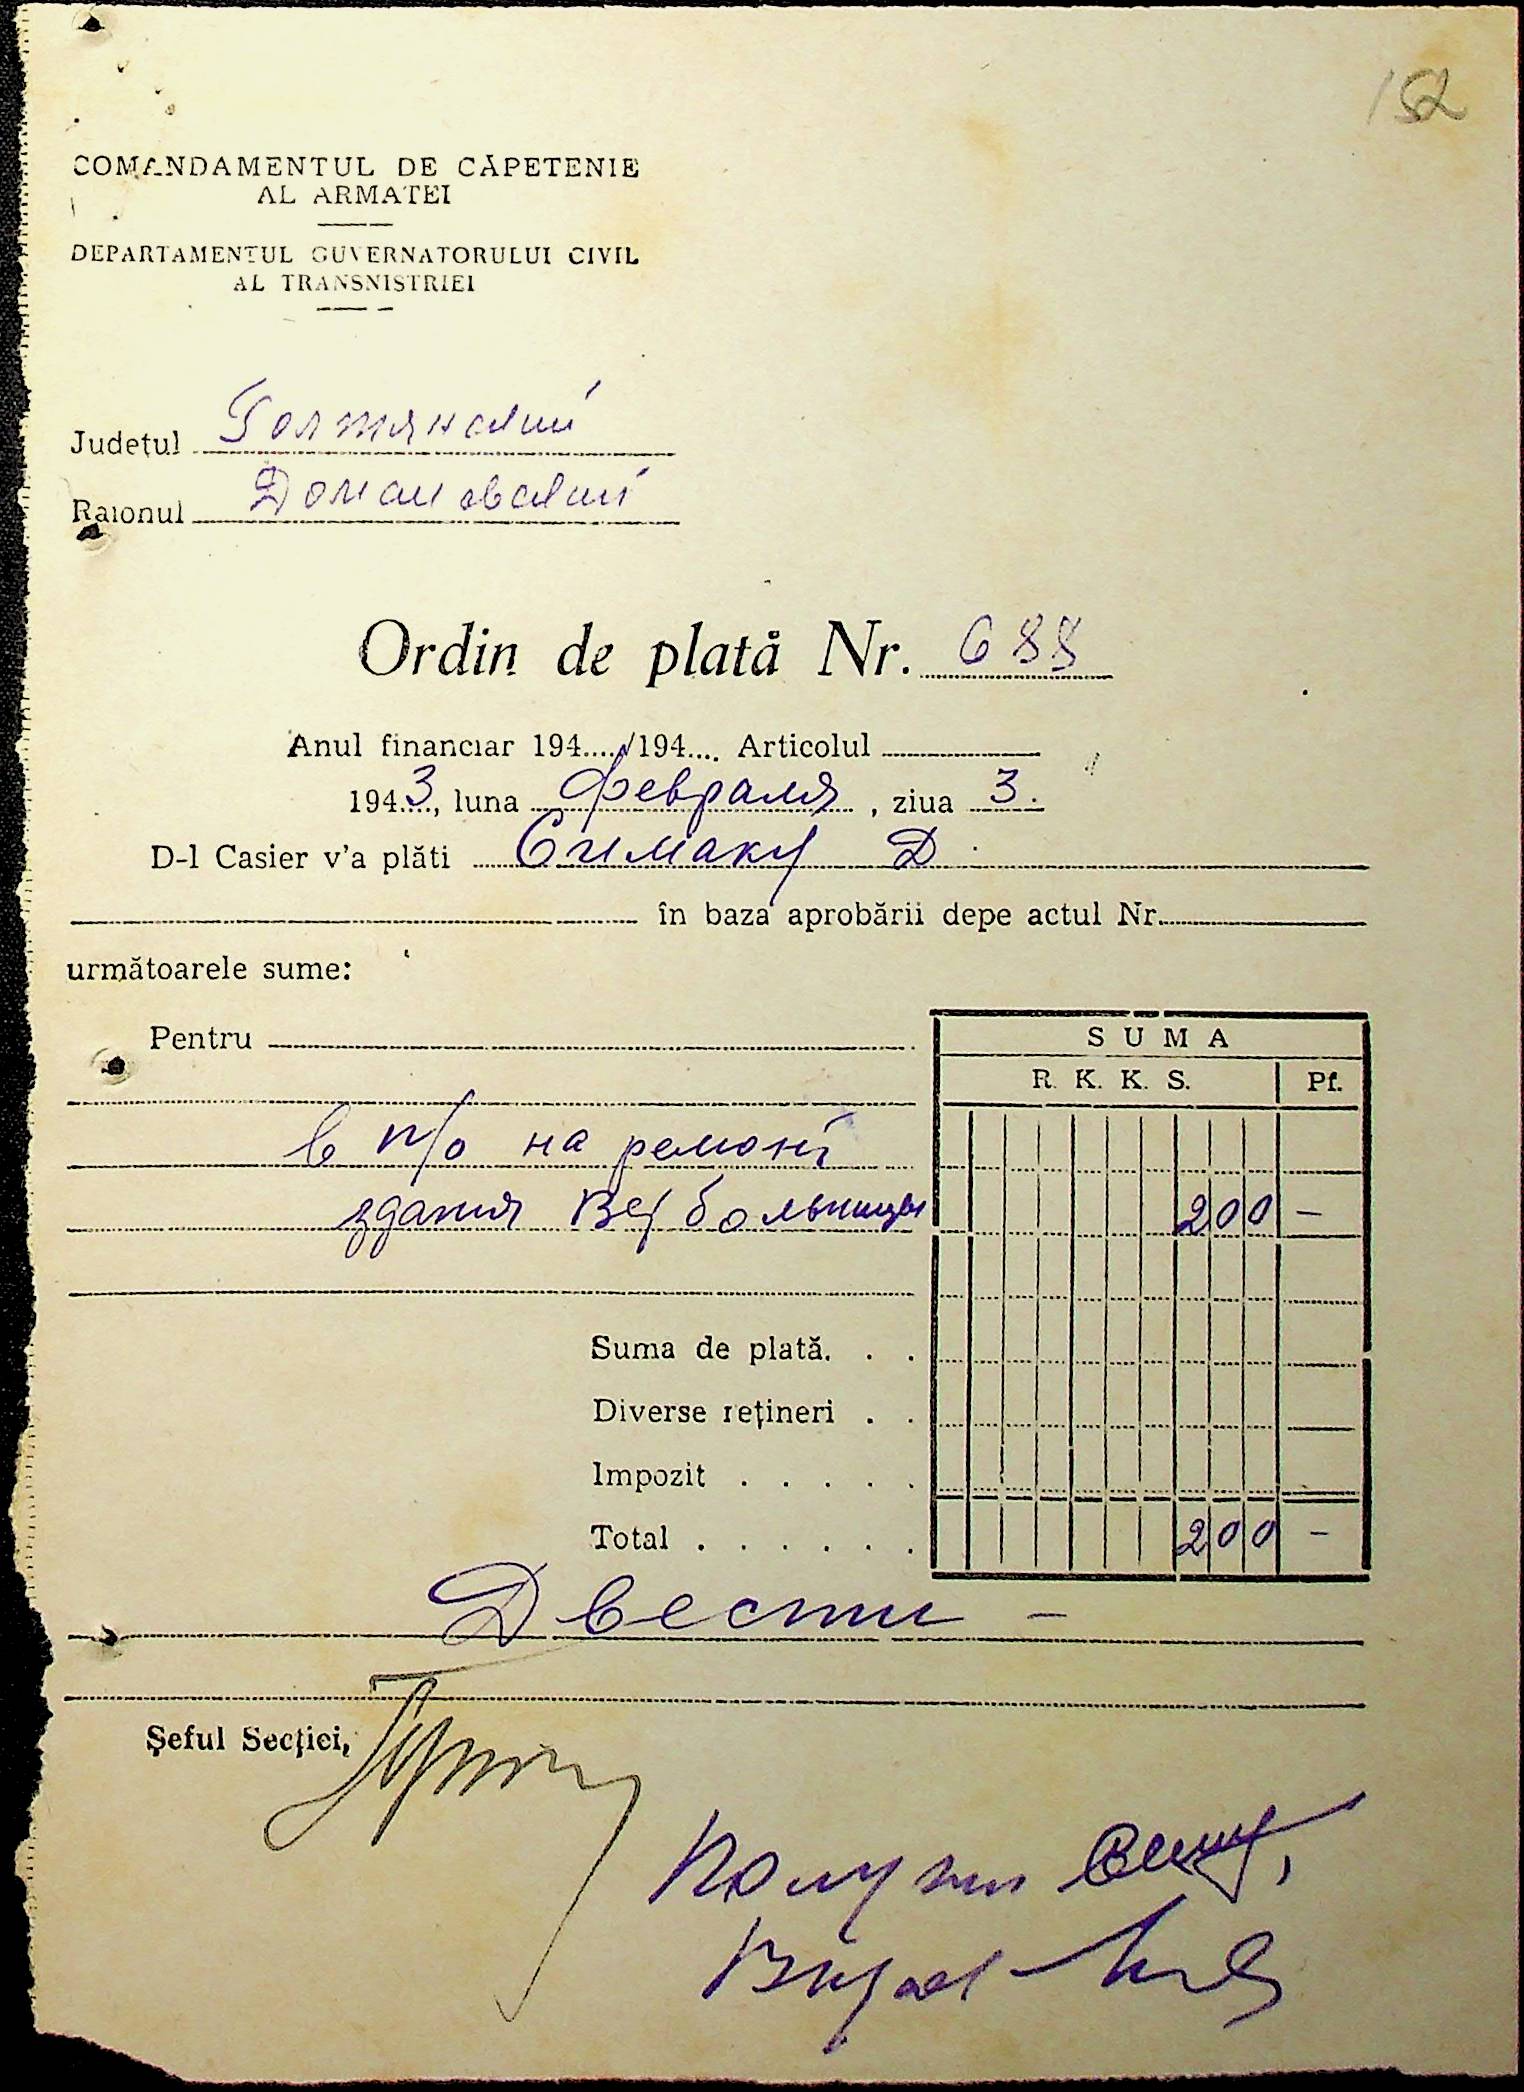 152
COMANDAMENTUL DE CĂPETENIE
AL ARMATEI
DEPARTAMENTUL GUVERNATORULUI CIVIL
AL TRANSNISTRIEI
Județul Голтянский
Raionul Доманевский
Ordin de plată Nr. 688
Anul financiar 194..../194.... Articolul
1943, luna февраля, ziua 3.
D-l Casier v'a plăti Симаку Д.
în baza aprobării depe actul Nr.
următoarele sume:
Pentru
SUMA
R. K. K. S. Pf.
в п/о на ремонт
здания Вет больницы 200 —
Suma de plată. . .
Diverse rețineri . .
Impozit . . . . .
Total . . . . . . 200 —
Двести —
Șeful Secției,
Получил
Выдал